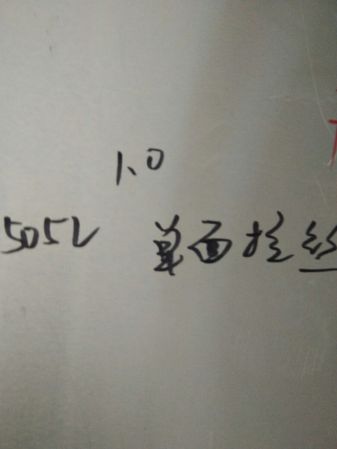 1.0
5052 单面拉丝